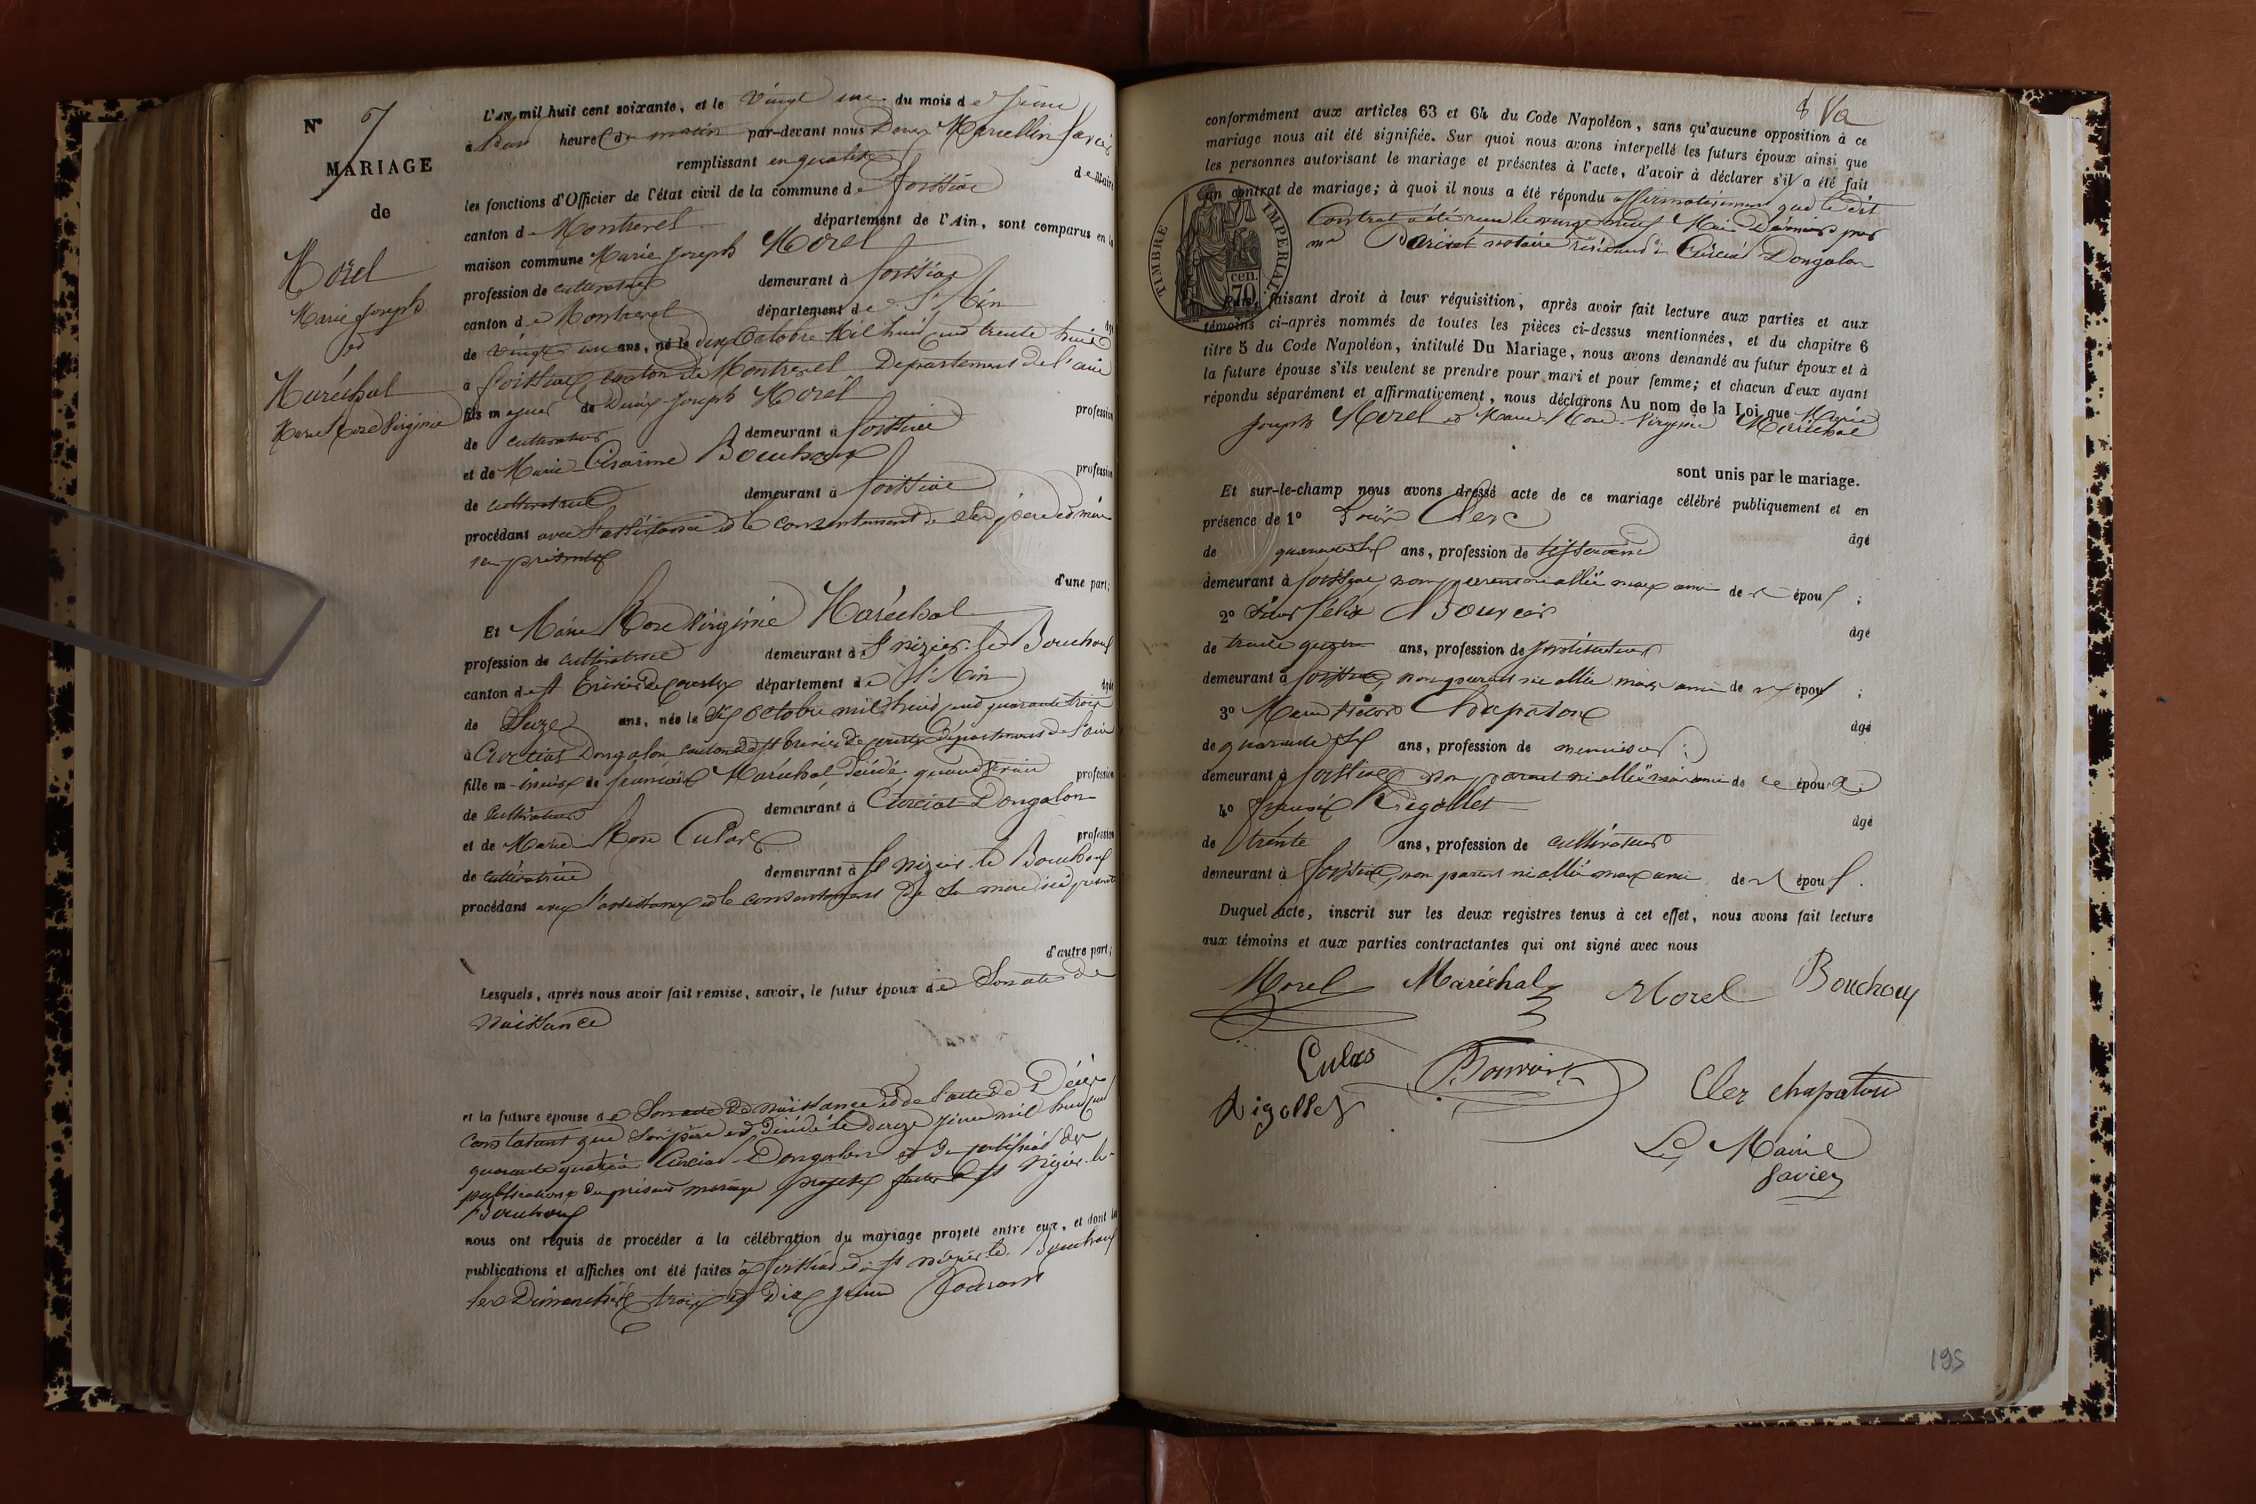 N° 7
MARIAGE
de
Morel
Marie Joseph
et
Maréchal
Marie Rose Virginie
L'AN mil huit cent soixante, et le vingt un du mois de juin
à heures du matin par-devant nous Marcellin
remplissant en qualité de Maire
les fonctions d'Officier de l'état civil de la commune de foissiat
canton de Montrevel département de l'Ain, sont comparus en la
maison commune Marie Joseph Morel
profession de cultivateur demeurant à foissiat
canton de Montrevel département de l'Ain
âgé
de vingt un ans, né le dix Octobre Mil huit cent trente huit
à foissiat, canton de Montrevel Département de l'ain
fils majeur de Joseph Morel
profession
de cultivateur demeurant à foissiat
et de Marie Bouchoux
profession
de cultivatrice demeurant à foissiat
procédant avec l'assistance et le consentement de ses père et mère
ici présents
d'une part;
Et Marie Rose Virginie Maréchal
profession de cultivatrice demeurant à St nizier le Bouchoux
canton de St Trivier de Courtes département de l'Ain
âgée
de Seize ans, née le octobre mil huit cent quarante trois
à Curciat Dongalon canton de St Trivier de Courtes département de l'ain
fille mineure de françois Maréchal décédé, quand vivait
profession
de Cultivateur demeurant à Curciat-Dongalon
et de Marie Rose Culas
profession
de cultivatrice demeurant à St nizier le Bouchoux
procédant avec l'assistance et le consentement de sa mère ici présente
d'autre part;
Lesquels, après nous avoir fait remise, savoir, le futur époux de Son acte de
Naissance
et la future épouse de Son acte de naissance et de l'acte de Décès
Constatant que Son père est décédé le douze juin mil huit cent
quarante quatre à Curciat-Dongalon et du certificat des
publications du présent mariage projeté faites à St Nizier le
Bouchoux
nous ont requis de procéder à la célébration du mariage projeté entre eux, et dont les
publications et affiches ont été faites à foissiat et à St nizier le Bouchoux
les Dimanches trois et Dix juin Courant
conformément aux articles 63 et 64 du Code Napoléon, sans qu'aucune opposition à ce
mariage nous ait été signifiée. Sur quoi nous avons interpellé les futurs époux ainsi que
les personnes autorisant le mariage et présentes à l'acte, d'avoir à déclarer s'il a été fait
un contrat de mariage; à quoi il nous a été répondu affirmativement que le dit
Contrat a été reçu le vingt neuf Mai Dernier par
me notaire résidant à Curciat Dongalon
TIMBRE IMPERIAL
70 cen.
Puis, faisant droit à leur réquisition, après avoir fait lecture aux parties et aux
témoins ci-après nommés de toutes les pièces ci-dessus mentionnées, et du chapitre 6
titre 5 du Code Napoléon, intitulé Du Mariage, nous avons demandé au futur époux et à
la future épouse s'ils veulent se prendre pour mari et pour femme; et chacun d'eux ayant
répondu séparément et affirmativement, nous déclarons Au nom de la Loi que Marie
Joseph Morel et Marie Rose Virginie Maréchal
sont unis par le mariage.
Et sur-le-champ nous avons dressé acte de ce mariage célébré publiquement et en
présence de 1° Clerc
âgé
de ans, profession de tisserand
demeurant à foissiat, non parent ni allié mais ami de époux ;
2° félix Bouvard
âgé
de trente quatre ans, profession de
demeurant à foissiat, non parent ni allié mais ami de époux ;
3° Chapatou
âgé
de quarante ans, profession de menuisier
demeurant à foissiat non parent ni allié mais ami de époux
4° Rigollet
âgé
de trente ans, profession de cultivateur
demeurant à foissiat, non parent ni allié mais ami de époux.
Duquel acte, inscrit sur les deux registres tenus à cet effet, nous avons fait lecture
aux témoins et aux parties contractantes qui ont signé avec nous
Morel Maréchal Morel Bouchoux
Culas Bouvard Clerc chapatou
Rigollet
Le Maire
195